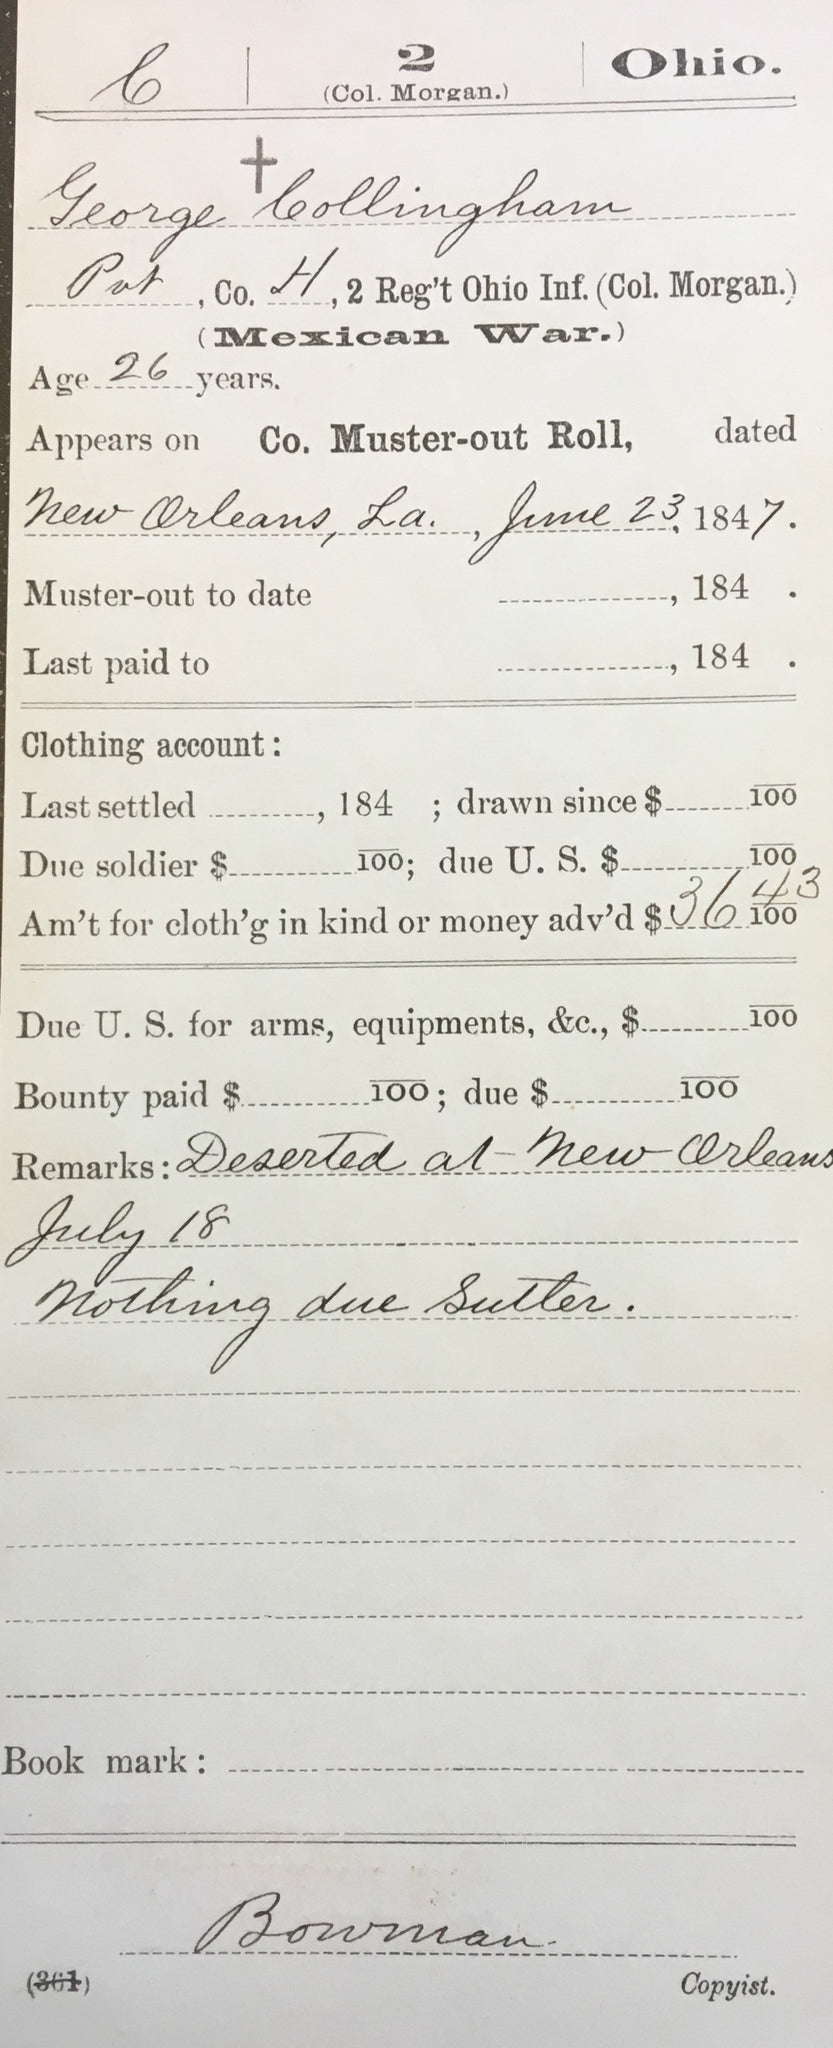 C 2 Ohio.
(Col. Morgan.)
George Collingham
Pvt, Co. H, 2 Reg't Ohio Inf. (Col. Morgan.)
(Mexican War.)
Age 26 years.
Appears on Co. Muster-out Roll, dated
New Orleans, La., June 23, 1847.
Muster-out to date , 184 .
Last paid to , 184 .
Clothing account:
Last settled , 184 ; drawn since $ 100
Due soldier $ 100; due U. S. $ 100
Am't for cloth'g in kind or money adv'd $ 36 43/100
Due U. S. for arms, equipments, &c., $ 100
Bounty paid $ 100; due $ 100
Remarks: Deserted at New Orleans
July 18
Nothing due Sutler.
Book mark:
Bowman
(361) Copyist.